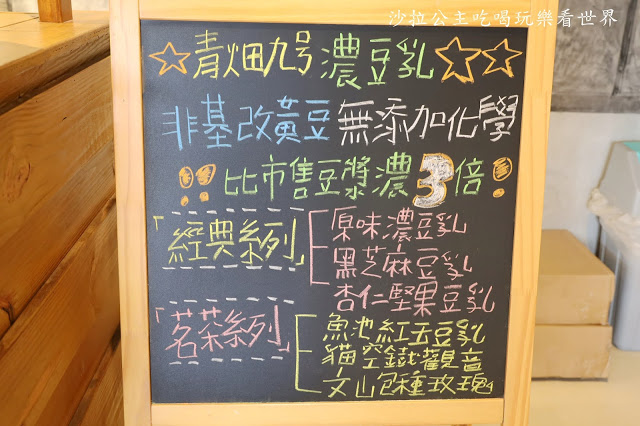 沙拉公主吃喝玩樂看世界
☆青畑九号濃豆乳☆☆
非基改黃豆無添加化學
!!比市售豆漿濃3倍!
「經典系列」
原味濃豆乳
黑芝麻豆乳
杏仁堅果豆乳
「茗茶系列」
魚池紅玉豆乳
貓空鐵觀音
文山包種玫瑰